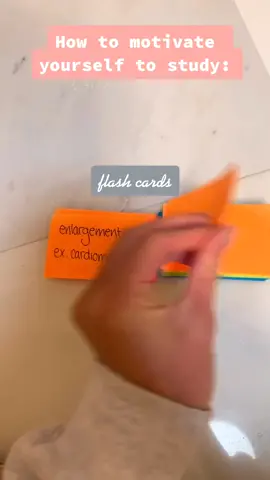 How to motivate
yourself to study:
flash cards
enlargement
ex.